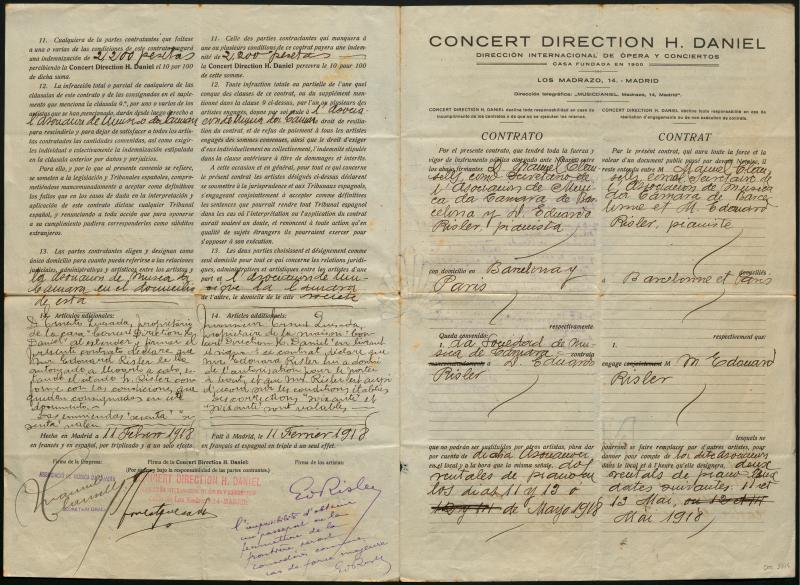 11. Cualquiera de las partes contratantes que faltase
a una o varias de las condiciones de este contrato pagará
una indemnización de 2,200 pesetas
percibiendo la Concert Direction H. Daniel el 10 por 100
de dicha suma.
12. La infracción total o parcial de cualquiera de las
cláusulas de este contrato y de las consignadas en el suple-
mento que menciona la cláusula 9.ª, por uno o varios de los
artistas que se han mencionado, dará desde luego derecho a
para rescindirlo y para dejar de satisfacer a todos los artistas
contratados las cantidades convenidas, así como exigir-
les individual o colectivamente la indemnización estipulada
en la cláusula anterior por daños y perjuicios.
Para ello, y por lo que el presente convenio se refiere,
se someten a la legislación y Tribunales españoles, compro-
metiéndose mancomunadamente a aceptar como definitivos los
fallos que en los casos de duda en la interpretación y
aplicación de este contrato dictare cualquier Tribunal
español, y renunciando a toda acción que para oponerse
a su cumplimiento pudiera corresponderles como súbditos
extranjeros.
13. Las partes contratantes eligen y designan como
único domicilio para cuanto pueda referirse a las relaciones
judiciales, administrativas y artísticas, entre los artistas y
la Asociación de Música da
Camara en el domicilio
de esta
14. Artículos adicionales:
D. Ernesto Quesada, propietario
de la casa "Concert Direction H.
Daniel" al extender y firmar el
presente contrato declara que
Mr. Edouard Risler le ha
autorizado a llevarlo a cabo,
documento.
Hecho en Madrid a 11 Febrero 1918
en francés y en español, por triplicado y a un solo efecto.
11. Celle des parties contractantes qui manquera à
une ou plusieurs conditions de ce contrat payera une indem-
nité de 2,200 pesetas
la Concert Direction H. Daniel percevra le 10 pour 100
de cette somme.
12. Toute infraction totale ou partielle de l'une quel-
conque des clauses de ce contrat, ou du supplément men-
tionné dans la clause 9 ci-dessus, par l'un ou plusieurs des
artistes engagés, donne par ce seul fait à l'Associa-
tion de Musica da Camara droit de resilia-
tion du contrat, et de refus de paiement à tous les artistes
engagés des sommes convenues, ainsi que le droit d'exiger
d'eux individuellement ou collectivement, l'indemnité stipulée
dans la clause antérieure à titre de dommages et intérêts.
A cette occasion et en général, pour tout ce qui concerne
le présent contrat les artistes dirigés ci-dessus déclarent
se soumettre à la jurisprudence et aux Tribunaux espagnols,
s'engageant conjointement à accepter comme définitives
les sentences que pourront rendre tout Tribunal espagnol
dans les cas où l'interprétation ou l'application du contrat
auraient donné lieu au doute, et renoncent à toute action qu'en
qualité de sujets étrangers ils pourraient exercer pour
s'opposer à son exécution.
13. Les deux parties choisissent et désignent comme
seul domicile pour tout ce qui concerne les relations juridi-
ques, administratives et artistiques entre les artistes d'une
part et l'Association de Mu-
sique da Camara
de l'autre, le domicile de la dite société
14. Articles additionnels:
Monsieur Ernest Quesada,
propriétaire de la maison "Con-
cert Direction H. Daniel" en livrant
et signant ce contrat, déclare que
Mr. Edouard Risler lui a donné
de l'autorisation pour le porter
à bout, et que Mr. Risler est aussi
d'accord avec les conditions établies.
Fait à Madrid, le 11 Fevrier 1918
en français et espagnol en triple à un seul effet.
Firma de la Empresa:
Firma de la Concert Direction H. Daniel
(Por poderes bajo la responsabilidad de las partes contratantes).
Firma de los artistas:
ASOCIACIÓN DE MUSICA DA CAMARA
SECRETARI GRAL.
CONCERT DIRECTION H. DANIEL
Calle de Los Madrazo, 14 - MADRID
Ed. Risler
L'impossibilité d'obtenir
un passeport ou la
fermeture de la
frontière serait
considérée comme
cas de force majeure
Ed. Risler
CONCERT DIRECTION H. DANIEL
DIRECCIÓN INTERNACIONAL DE ÓPERA Y CONCIERTOS
CASA FUNDADA EN 1900
LOS MADRAZO, 14. - MADRID
Dirección telegráfica: "MUSICDANIEL, Madrazo, 14, Madrid".
CONCERT DIRECTION H. DANIEL declina toda responsabilidad en caso de
incumplimiento de los contratos o de que no se ejecuten los mismos.
CONTRATO
Por el presente contrato, que tendrá toda la fuerza y
vigor de instrumento público otorgado ante Notario entre
los abajo firmantes D. Manuel Clau-
sells como Secretario de
l'Asociacion de Musi-
ca da Camara de Bar-
celona y D. Eduardo
Risler, pianista
con domicilio en Barcelona y
Paris
respectivamente
Queda convenido:
1. La Sociedad de Mu-
sica de Camara contrata
a D. Eduardo
Risler
que no podrán ser sustituidos por otros artistas, para dar
por cuenta de dicha Asociacion
en el local y a la hora que la misma señale, dos
recitales de piano en
los dias 11 y 13 o
12 y 14 de Mayo 1918
CONCERT DIRECTION H. DANIEL décline toute responsabilité en cas de
résiliation d'engagements ou de non exécution de contrats.
CONTRAT
Par le présent contrat, qui aura toute la force et la
valeur d'un document public passé par devant Notaire, il
reste convenu entre M Manuel Clau-
sells, comme Secretaire de
l'Association de Musica
da Camara de Barce-
lonne et M. Edouard
Risler, pianiste
domiciliés
à Barcelonne et Paris
respectivement que:
1.
engage conjointement M Edouard
Risler
lesquels ne
pourront se faire remplacer par d'autres artistes, pour
donner pour le compte de la dite Association
dans le local et à l'heure qu'elle désignera, deux
recitals de piano aux
dates suivantes: 11 et
13 Mai, ou 12 et 14
Mai 1918